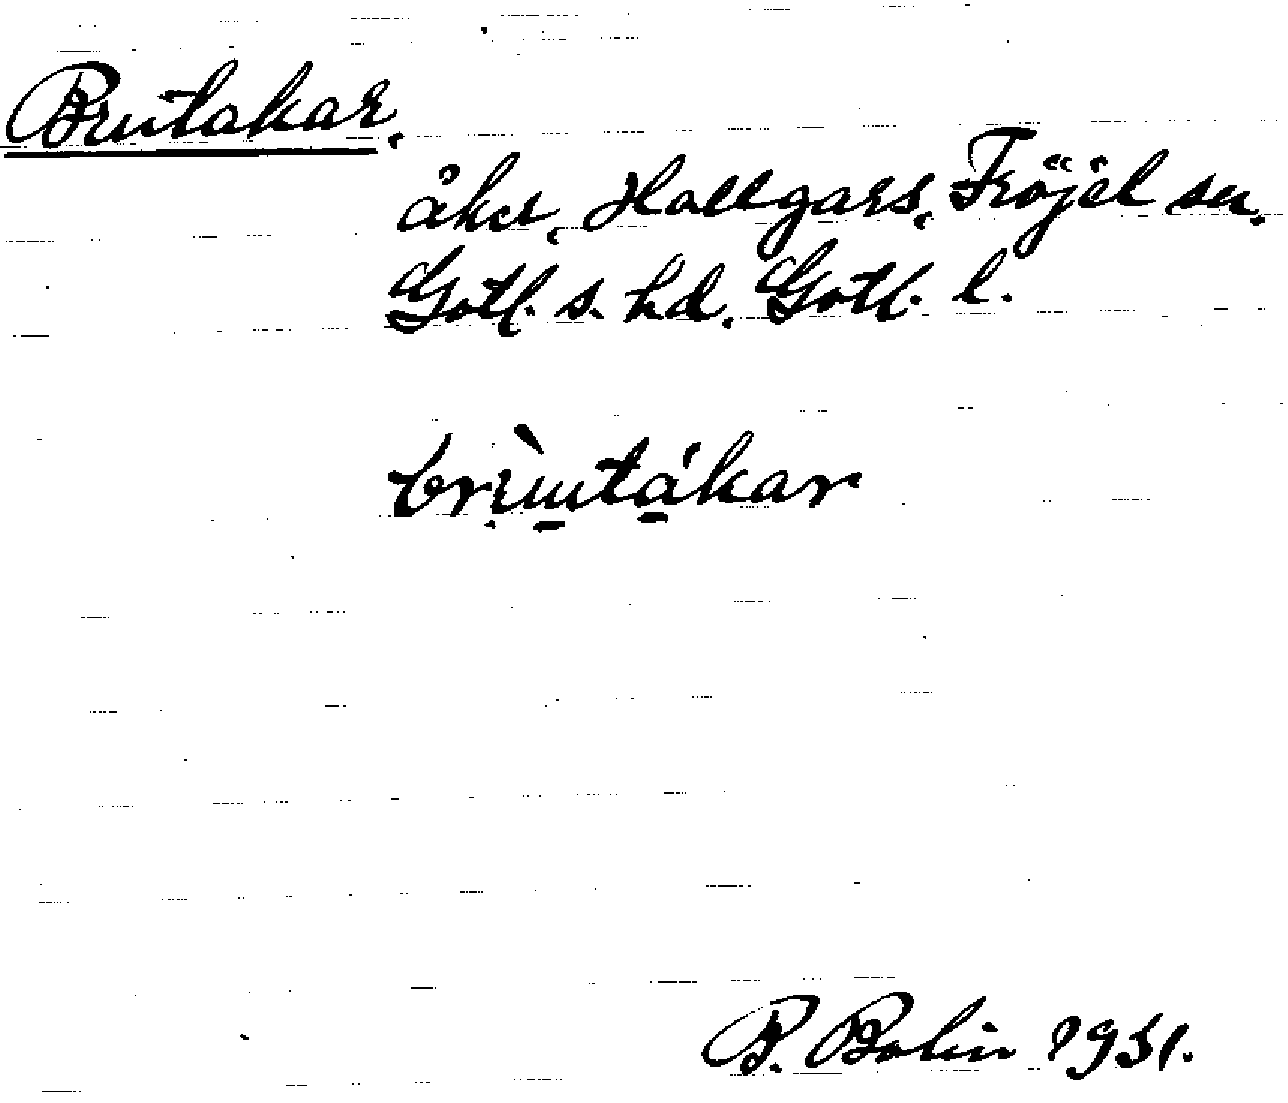 Brutakar.
åker, Hallgars, Fröjel sn.
Gotl. s. hd. Gotl. l.
brùutákar
P. Bolin 1931.